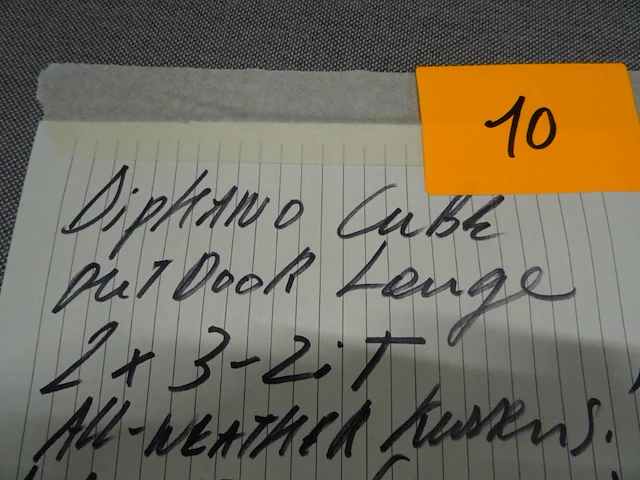 10
DipHANO CuBE
OUTDOOR Lounge
2 x 3-ZiT
ALL-WEATHER Kussens.